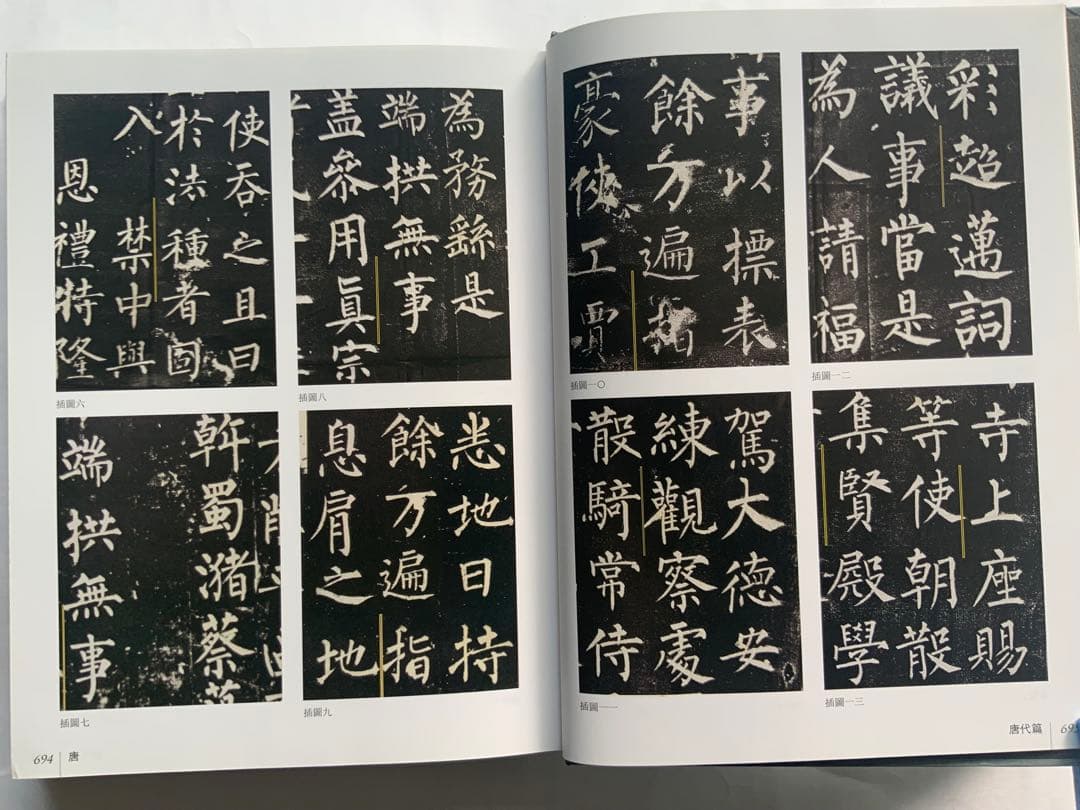 使吞之且曰
於法種者固
入禁中與
恩禮特隆
插圖六
斡蜀瀦蔡
端拱無事
插圖七
為務繇是
端拱無事
盖參用真宗
插圖八
悉地日持
餘万遍指
息肩之地
插圖九
694 唐
事以標表
餘万遍指
豪俠工賈
插圖一〇
駕大德安
練觀察處
散騎常侍
插圖一一
彩超邁詞
議事當是
為人請福
插圖一二
寺上座賜
等使朝散
集賢殿學
插圖一三
唐代篇 695